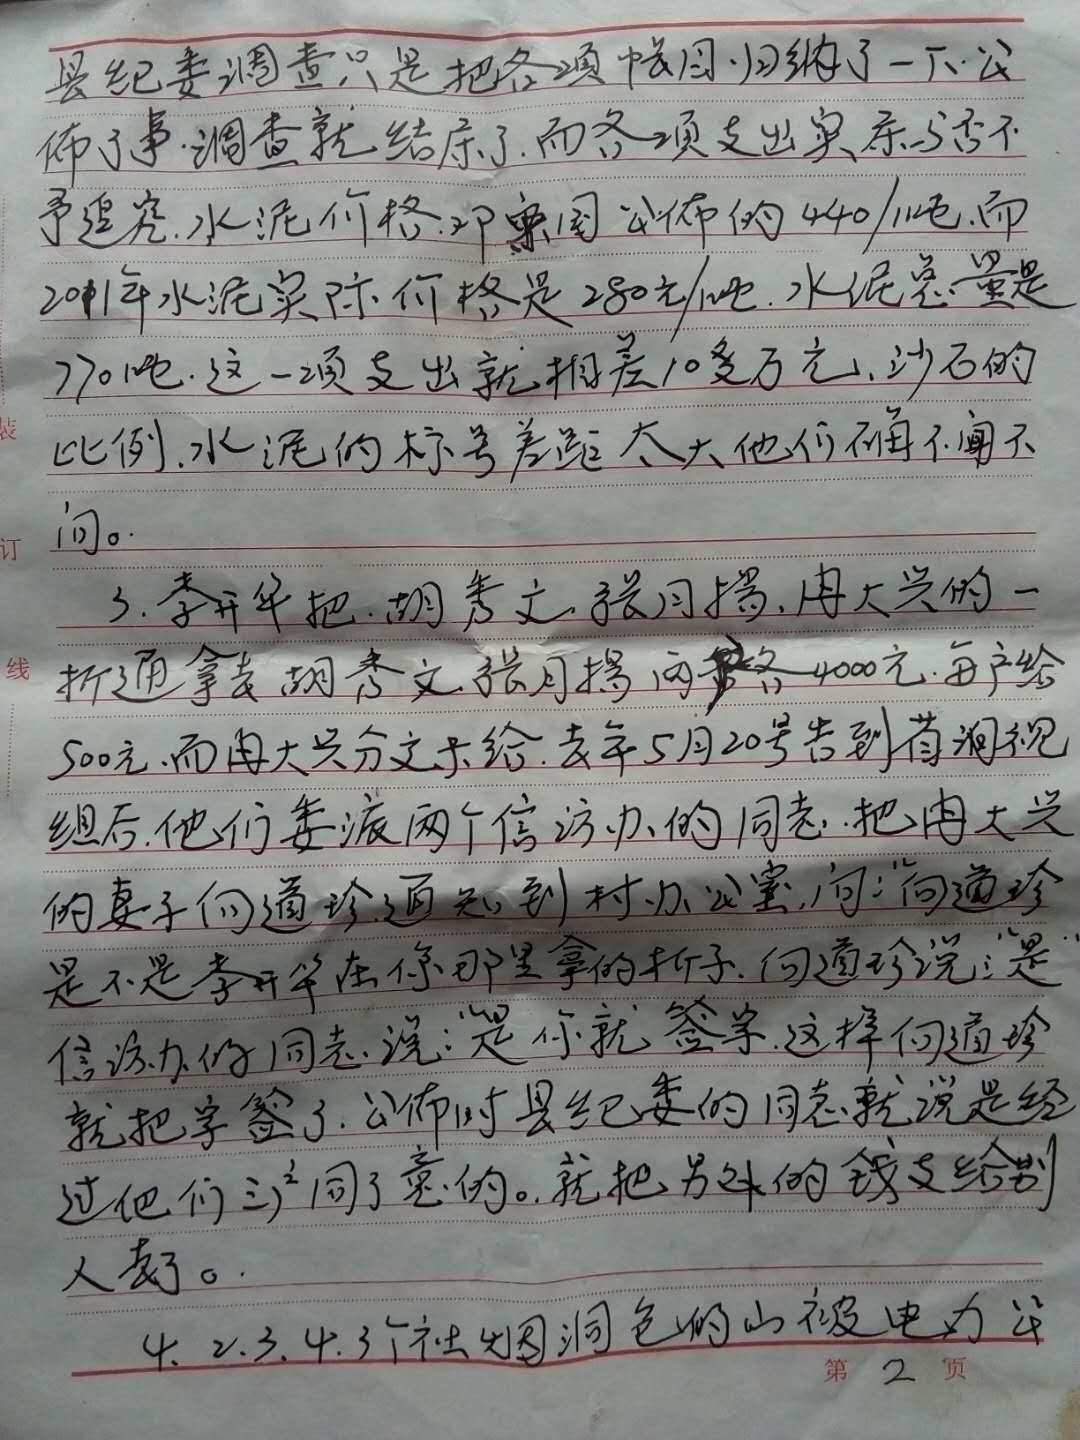 县纪委调查只是把各项帐目归纳了一下.公
佈了事.调查就结束了.而各项支出实际与否不
予追究.水泥价格.邓国公佈的440/吨.而
2011年水泥实际价格是280元/吨.水泥总量是
770吨.这一项支出就相差10多万元、沙石的
比例.水泥的标号差距太大他们不闻不
问。
3.李开华把.胡秀文.张月揚.冉大兴的一
折通拿去胡秀文.张月揚两各4000元.每户给
500元.而冉大兴分文未给.去年5月20号告到视
组后.他们委派两个信访办的同志.把冉大兴
的妻子何道珍通知到村办公室,问:“何道珍
是不是李开华在你那里拿的折子.何道珍说:“是”
信访办的同志.说:“是你就签字.这样何道珍
就把字签了.公佈时县纪委的同志就说是经
过他们三户同了意的。就把另外的钱支给别
人去了。
4.2.3.4.3个社烟洞色的山被电力公
第2页
装
订
线